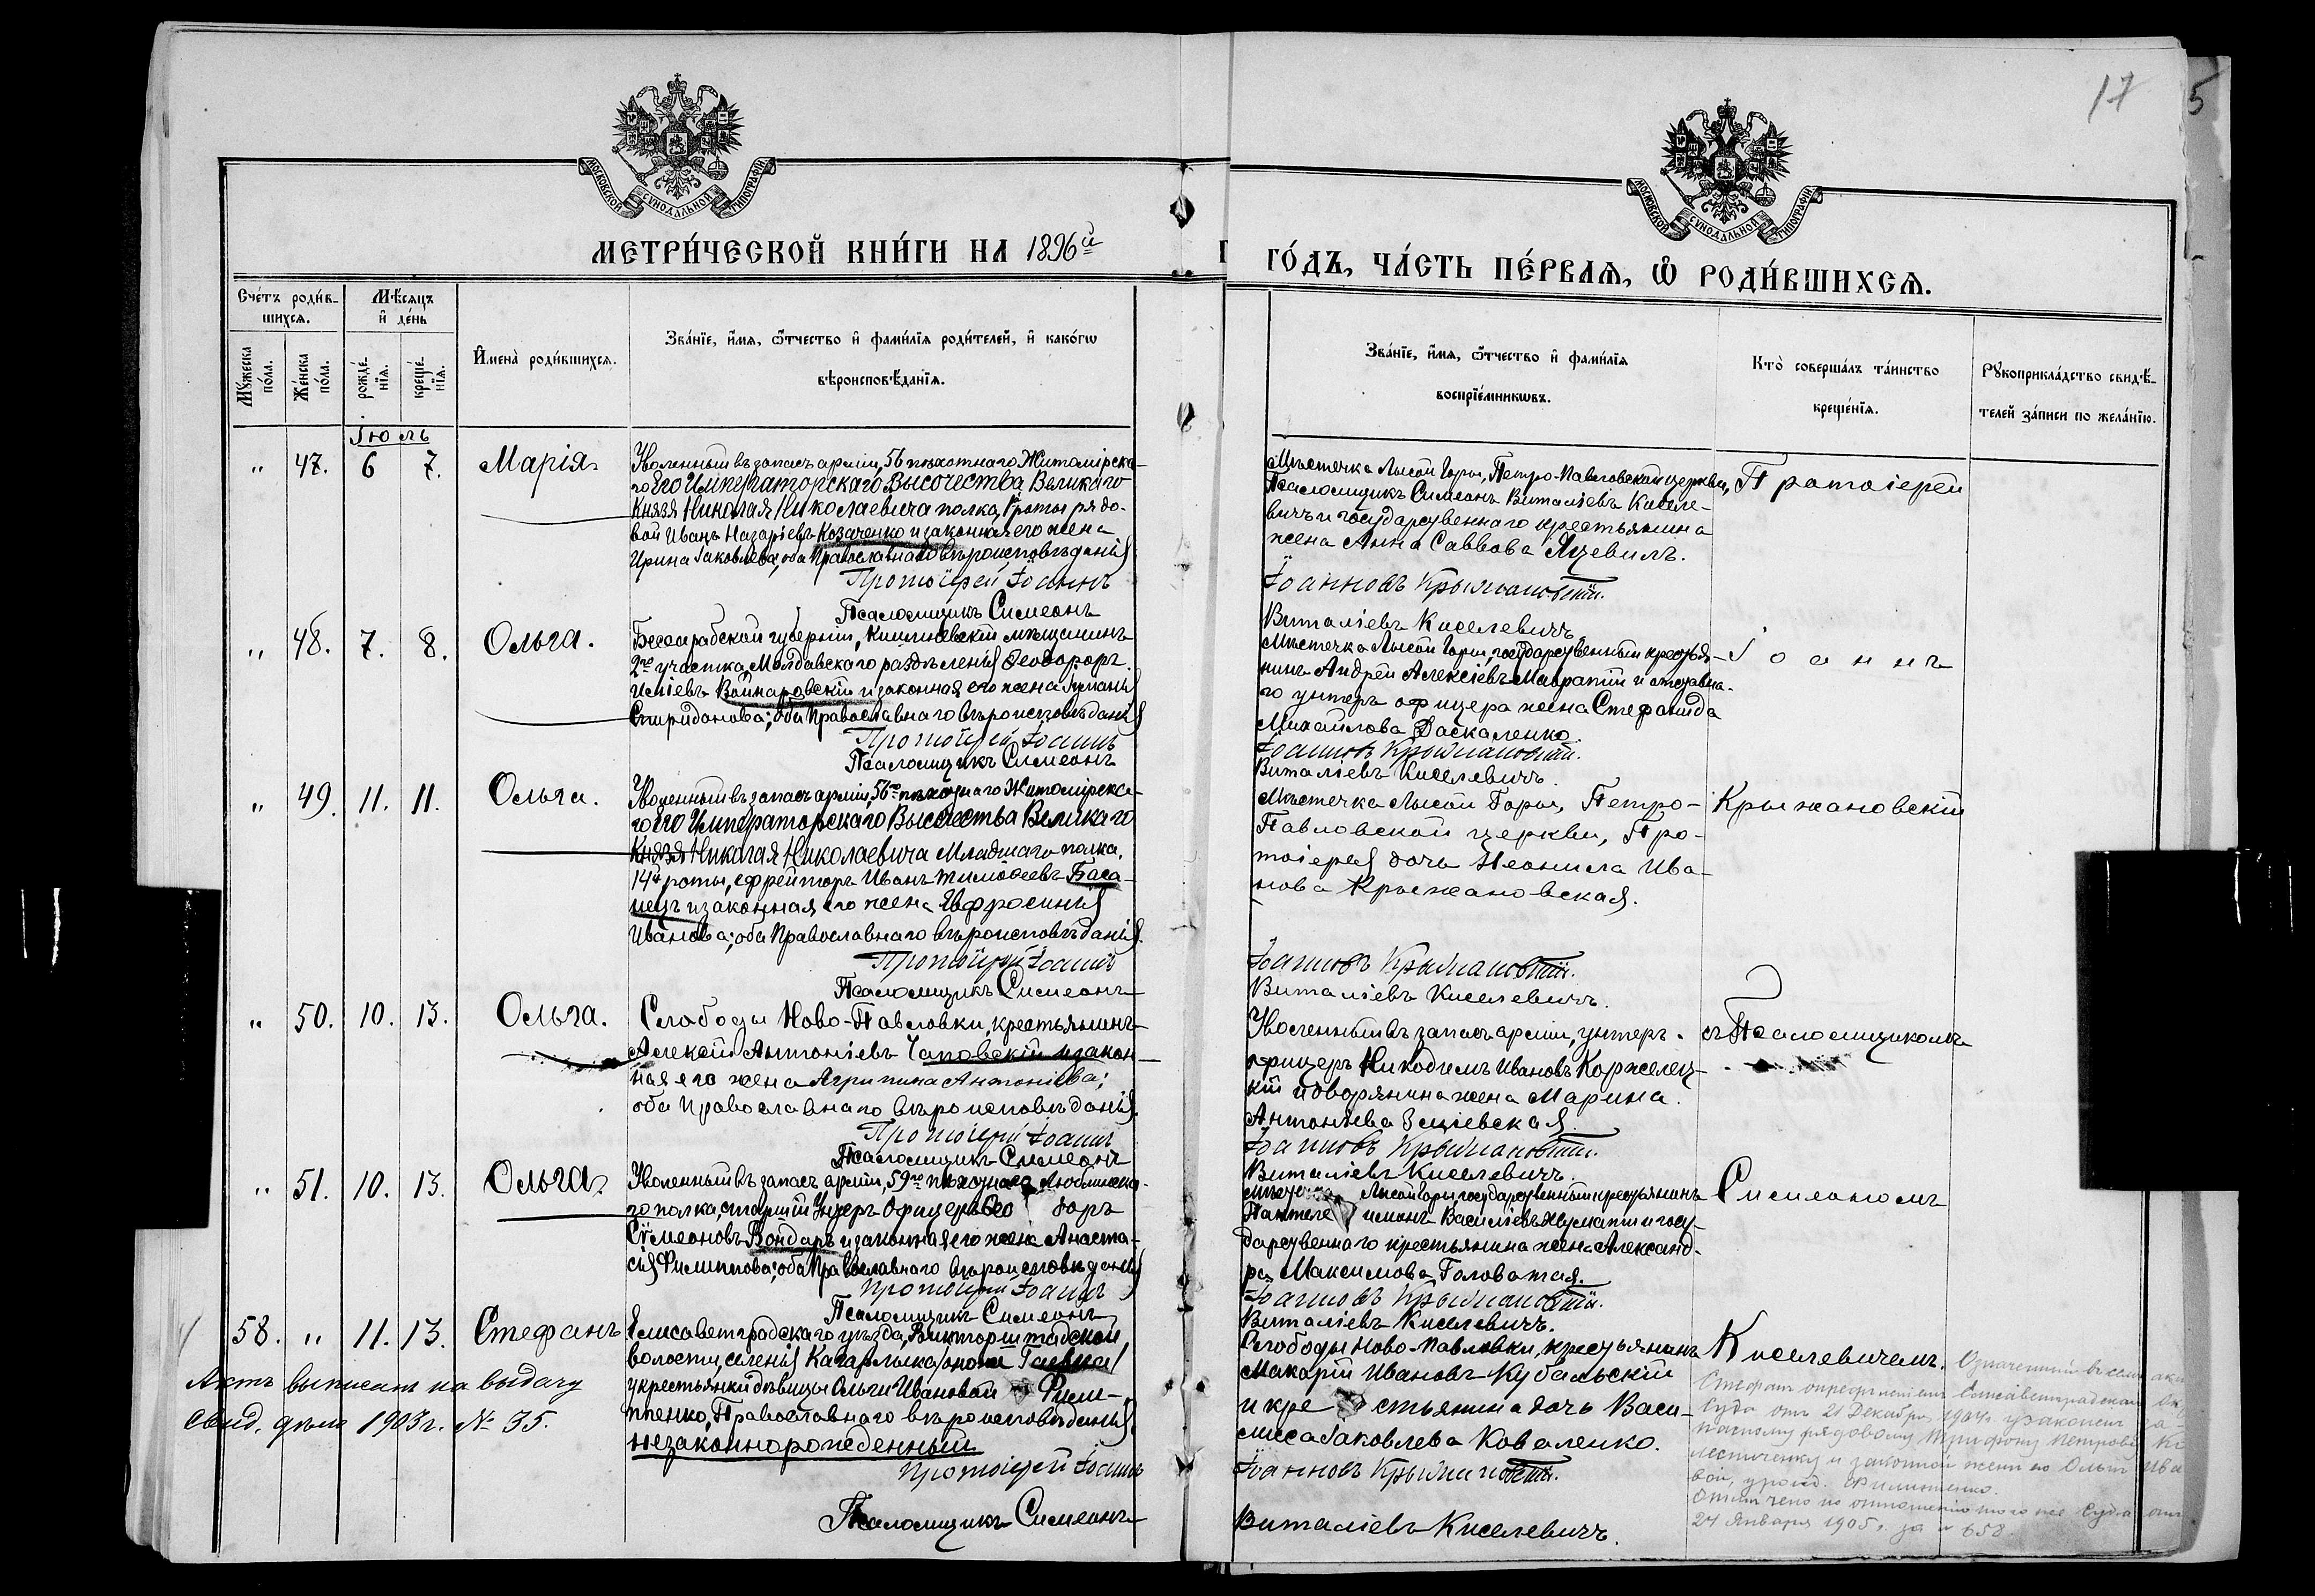 17
5
МОСКОВСКОЙ СУНОДАЛЬНОЙ ТИПОГРАФІИ
МОСКОВСКОЙ СУНОДАЛЬНОЙ ТИПОГРАФІИ
МЕТРИ́ЧЕСКОЙ КНИ́ГИ НА 1896й
ГО́ДЪ, ЧА́СТЬ ПЕ́РВАѦ, Ѡ҆ РОДИ́ВШИХСѦ.
Сче́тъ роди́в-
шихсѧ.
Мѣ́сѧцъ
и҆ де́нь
Мꙋ́жеска по́ла.
Же́нска по́ла.
рожде́-нїѧ.
креще́-нїѧ.
И҆мена̀ роди́вшихсѧ.
Зва́нїе, и҆́мѧ, ѻ҆́тчество и҆ фами́лїѧ роди́телей, и҆ како́гѡ
вѣроисповѣ́данїѧ.
Зва́нїе, и҆́мѧ, ѻ҆́тчество и҆ фами́лїѧ
воспрїе́мникѡвъ.
Кто̀ соверша́лъ та́инство
креще́нїѧ.
Рꙋкоприкла́дство свидѣ́-
телей за́писи по жела́нїю.
Іюль
" 47. 6 7. Марія
Уволенный въ запасъ арміи, 56 пѣхотнаго Житомірска-
го Его Императорскаго Высочества Великаго
Князя Николая Николаевича полка, роты рядо-
вой Иванъ Назаріевъ Козаченко и законная его жена
Ирина Іаковлева; оба Православнаго вѣроисповѣданія
Протоіерей Іоаннъ
Псаломщикъ Симеонъ
Мѣстечка Лысой Горы, Петро-Павловской церкви,
Псаломщикъ Симеонъ Виталіевъ Киселе-
вичъ и государственнаго крестьянина
жена Анна Саввова Яцевилъ.
Іоанновъ Крыжановскій.
Виталіевъ Киселевичъ.
Протоіерей
" 48. 7. 8. Ольга.
Бессарабской губерніи, Кишиневскій мѣщанинъ
2го участка, Молдавскаго раздѣленія Ѳеодоръ
Войнаровскій и законная его жена
Спиридонова; оба Православнаго вѣроисповѣданія
Протоіерей Іоаннъ
Псаломщикъ Симеонъ
Мѣстечка Лысой Горы, государственный крестья-
нинъ Андрей Алексіевъ и отставна-
го унтеръ офицера жена Стефанида
Михайлова Даскаленко.
Іоанновъ Крыжановскій.
Виталіевъ Киселевичъ.
Іоаннъ
" 49. 11. 11. Ольга.
Уволенный въ запасъ арміи, 56го пѣхотнаго Житомірска-
го Его Императорскаго Высочества Великаго
Князя Николая Николаевича Младшаго полка,
14й роты, ефрейторъ Иванъ Тимоѳеевъ Баса-
нецъ и законная его жена Евфросинія
Иванова; оба Православнаго вѣроисповѣданія.
Протоіерей Іоаннъ
Псаломщикъ Симеонъ
Мѣстечка Лысой Горы, Петро-
Павловской церкви, Про-
тоіерея дочь Неонила Ива-
нова Крыжановская.
Іоанновъ Крыжановскій.
Виталіевъ Киселевичъ.
Крыжановскій
" 50. 10. 13. Ольга.
Слободы Ново-Павловки, крестьянинъ
Алексій Антоніевъ Чаповскій и закон-
ная его жена Агрипина Антоніева;
оба Православнаго вѣроисповѣданія.
Протоіерей Іоаннъ
Псаломщикъ Симеонъ
Уволенный въ запасъ арміи, унтеръ-
офицеръ Никодимъ Ивановъ Коржелец-
кій и дворянина жена Марина
Антоніева
Іоанновъ Крыжановскій.
Виталіевъ Киселевичъ.
съ Псаломщикомъ
" 51. 10. 13. Ольга.
Уволенный въ запасъ арміи, 59го пѣхотнаго Люблинска-
го полка, старшій Унтеръ Офицеръ Ѳео доръ
Сѵмеоновъ Бондарь и законная его жена Анаста-
сія Филиппова; оба Православнаго вѣроисповѣданія
Протоіерей Іоаннъ
Псаломщикъ Симеонъ
Мѣстечка Лысой Горы, государственный крестьянинъ
Пантеле имонъ Василіевъ и госу-
дарственнаго крестьянина жена Александ-
ра Максимова Головатая.
Іоанновъ Крыжановскій.
Виталіевъ Киселевичъ.
Симеономъ
58. " 11. 13. Стефанъ
Елисаветградскаго уѣзда, Викторштадской
волости, селенія Кагарлыка /оной Гаевка/
у крестьянки дѣвицы Ольги Ивановой Фили-
ппенко, Православнаго вѣроисповѣданія
незаконнорожденный
Протоіерей Іоаннъ
Псаломщикъ Симеонъ
Слободы Ново-Павловки, крестьянинъ
Макарій Ивановъ Кубальскій
и кре стьянина дочь Васи-
лиса Іаковлева Коваленко.
Іоанновъ Крыжановскій.
Виталіевъ Киселевичъ.
Киселевичемъ.
Актъ выписанъ на выдачу
свид. дѣло 1903 г. № 35.
Означенный въ семъ актѣ
Стефанъ опредѣленіемъ Елисаветградскаго Ок.
Суда отъ 21 Декабря 1904 г. узаконенъ
рядовому Трифону Петрову
и законной женѣ его Ольгѣ Ива
вой, урожд. Филипенко.
Отмѣчено по отношенію того же Суда отъ
24 Января 1905 г. за № 658